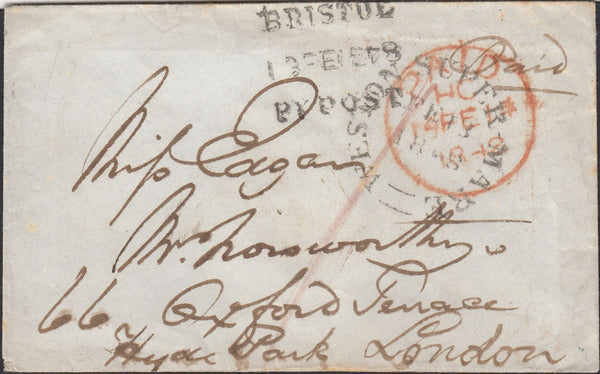 BRISTOL
13 FE 1848
PY POST
WESTON SUPER-MARE
PAID
14 FE 14
1848
Paid
Miss Eagar
Mr. Norsworthys
66 Oxford Terrace
Hyde Park London